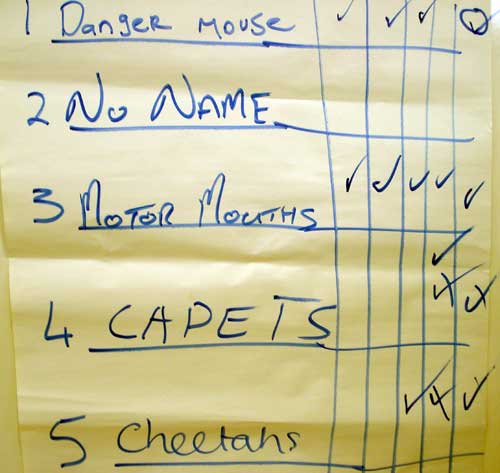 1 Danger mouse
2 No NAME
3 MOTOR MOUTHS
4 CADETS
5 Cheetahs